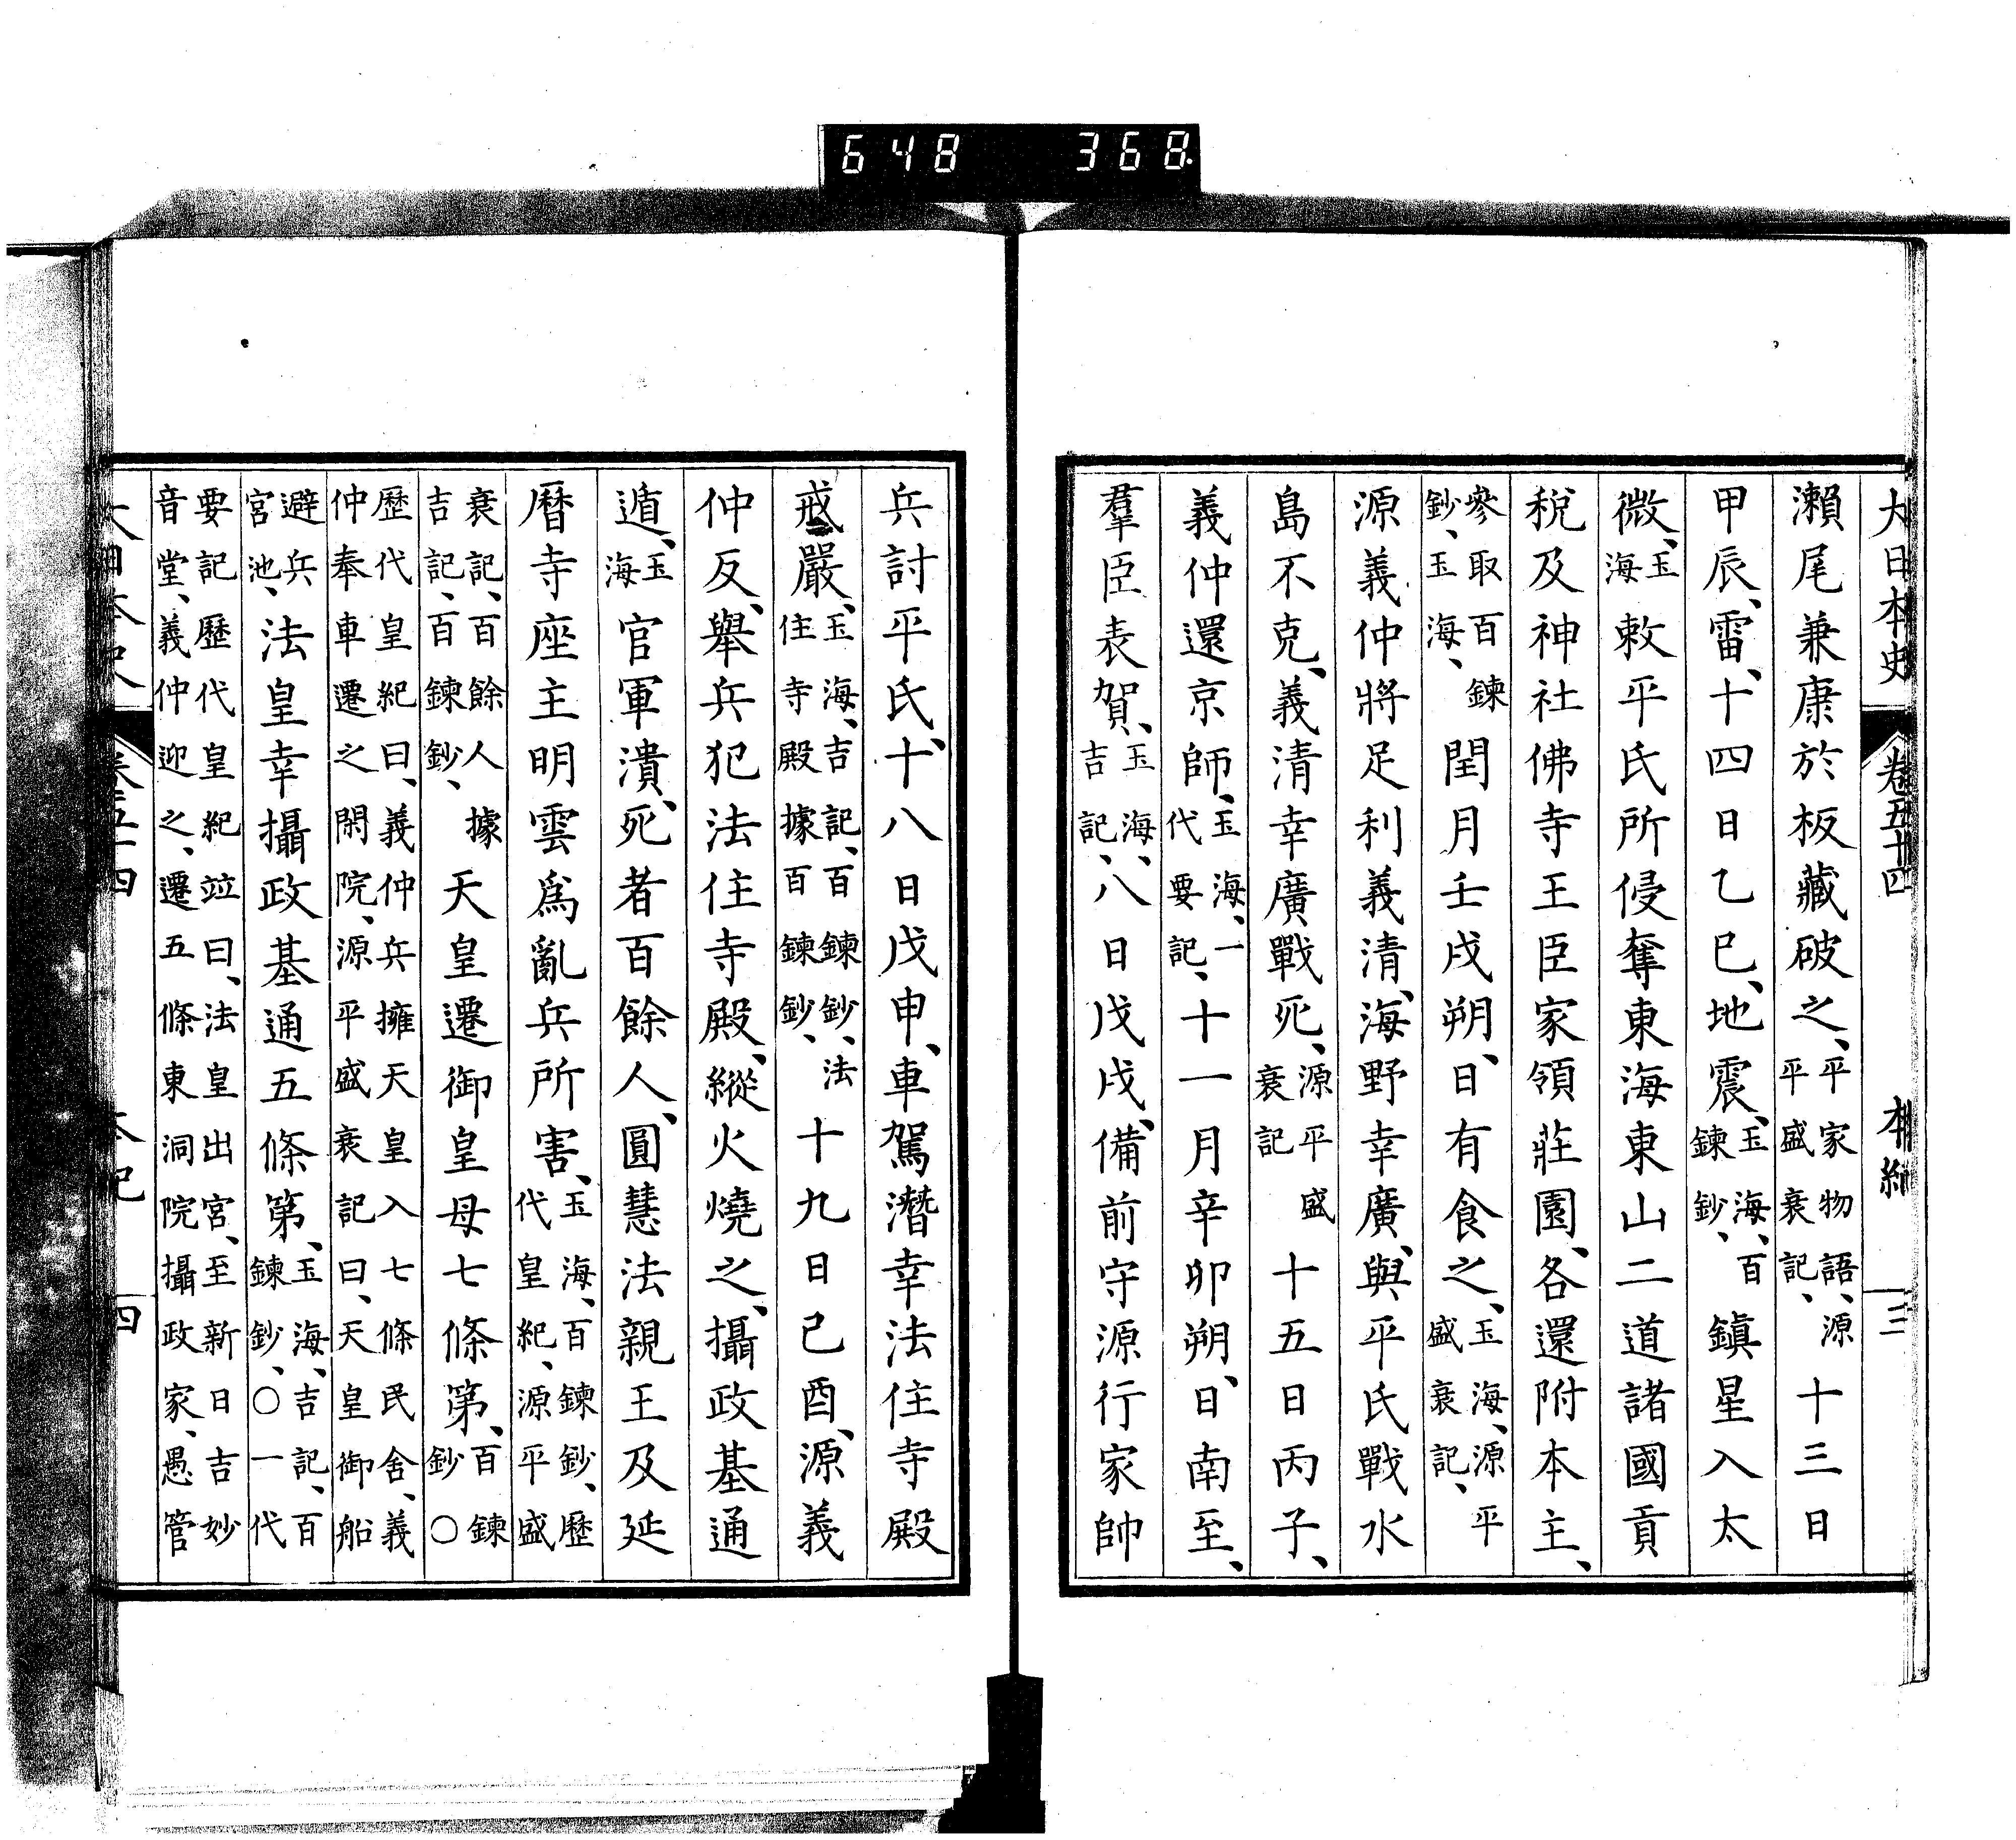 648 368
大日本史 卷五十四 本紀 三
瀨尾兼康於板藏破之、平家物語、源平盛衰記、十三日
甲辰、雷、十四日乙巳、地震、玉海、百鍊鈔、鎮星入太
微、玉海敕平氏所侵奪東海東山二道諸國貢
稅及神社佛寺王臣家領莊園、各還附本主、
參取百鍊鈔、玉海、閏月壬戌朔、日有食之、玉海、源平盛衰記、
源義仲將足利義清、海野幸廣、與平氏戰水
島不克、義清幸廣戰死、源平盛衰記十五日丙子、
義仲還京師、玉海、一代要記、十一月辛卯朔、日南至、
羣臣表賀、玉海、吉記、八日戊戌、備前守源行家帥
兵討平氏、十八日戊申、車駕潛幸法住寺殿
戒嚴、玉海、吉記、百鍊鈔、法住寺殿據百鍊鈔、十九日己酉、源義
仲反、舉兵犯法住寺殿、縱火燒之、攝政基通
遁、玉海官軍潰、死者百餘人、圓慧法親王及延
曆寺座主明雲爲亂兵所害、玉海、百鍊鈔、歷代皇紀、源平盛
衰記、百餘人據吉記、百鍊鈔、天皇遷御皇母七條第、百鍊鈔○
歷代皇紀曰、義仲兵擁天皇入七條民舍、義仲奉車遷之閑院、源平盛衰記曰、天皇御船
避兵宮池、法皇幸攝政基通五條第、玉海、吉記、百鍊鈔、○一代
要記歷代皇紀竝曰、法皇出宮、至新日吉妙音堂、義仲迎之、遷五條東洞院攝政家、愚管
大日本史 卷五十四 本紀 四